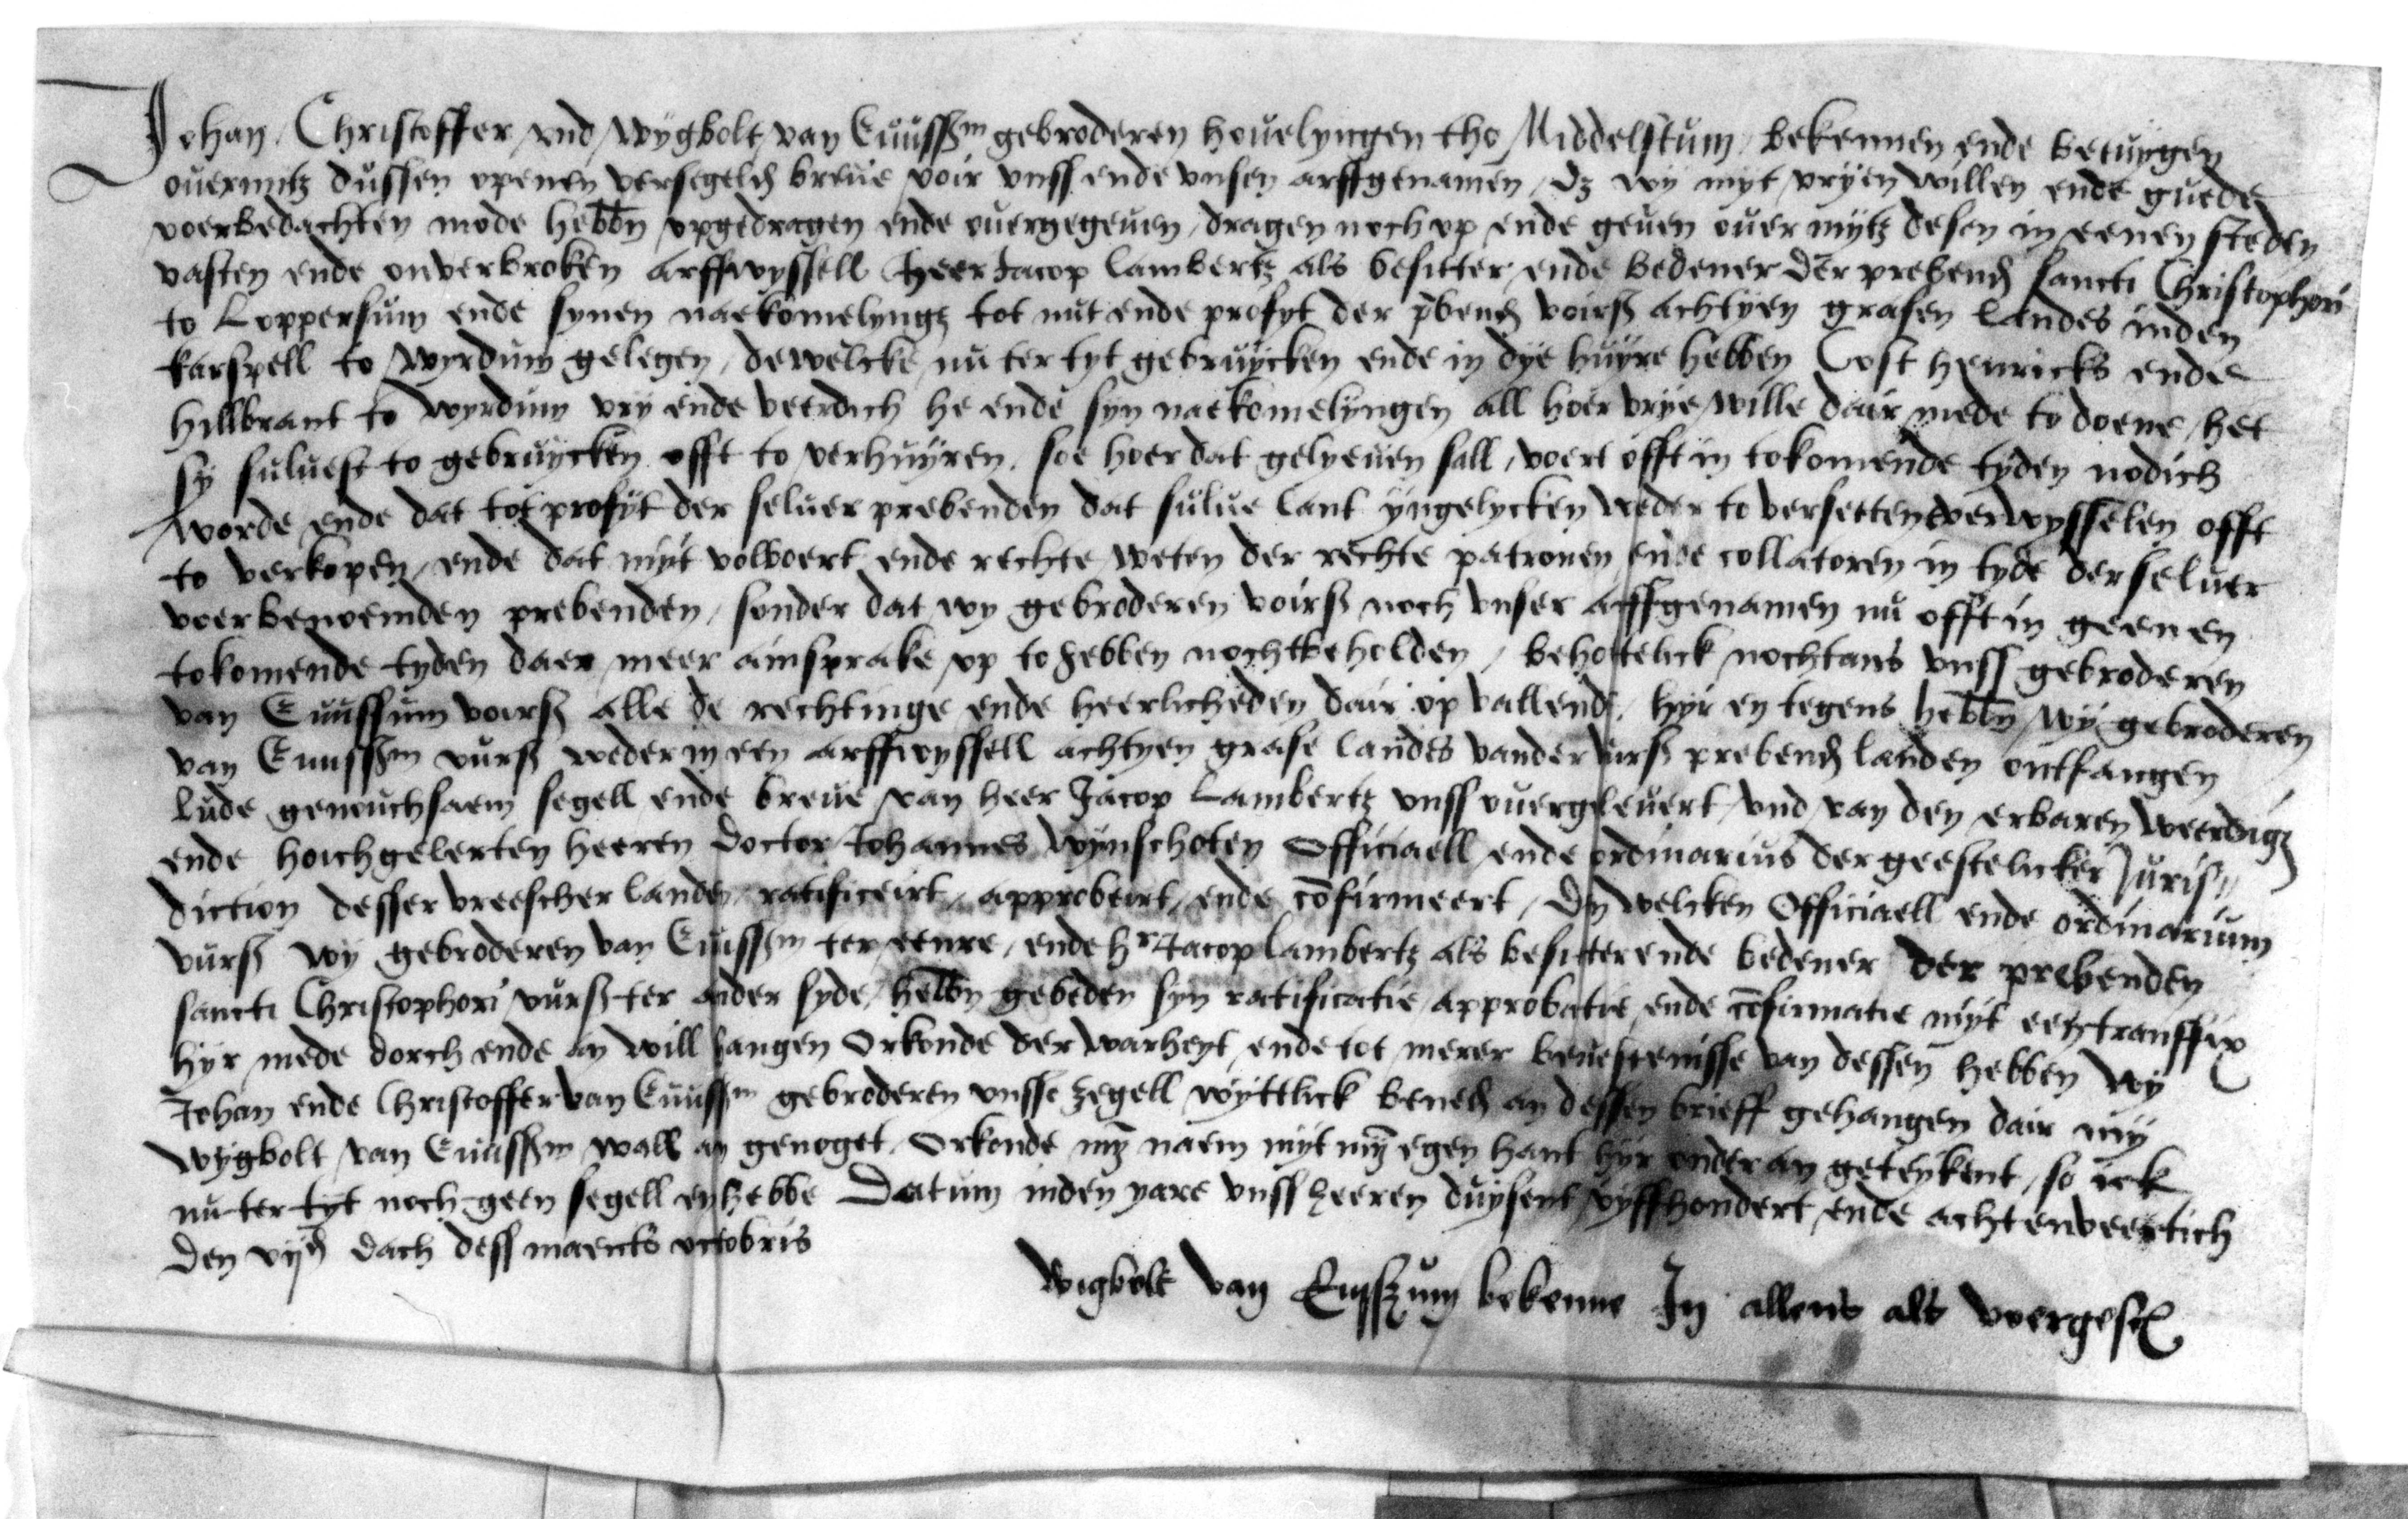 Johan, Christoffer und wygbolt van Ewussm gebroderen hovelyngen tho Middelstum, bekennen ende betuygen
overmitz dussen openen versegelden breve voir unss ende unsen arffgenamen, dz wy myt vryen willen ende guede
voerbedachten mode hebbn opgedragen ende overgegeven, dragen noch op ende geven over mytz desen in eenen steden
vasten ende onverbroken arffwyssell heer Jacop Lambertz als besitter ende bedener der prebend sancti Christophori
to Loppersum ende synen naekomelyngz tot nut ende profyt der pbend voirß achtyen grasen landes inden
karspell to wyrdum gelegen, dewelcke nu ter tyt gebruycken ende in dye huyre hebben Cost henricks ende
Hillbrant to wyrdum vry ende veerdich he ende syn naekomelyngen all hoer vrye wille dair mede to doene, het
sy sulvest to gebruycken offt to verhuyren, soe hoer dat gelyeven sall, voert offt in tokomende tyden nodich
worde ende dat tot profyt der selver prebenden dat sulve lant yngelycken weder to versetten verwysselen offt
to verkopen, ende dat myt volboert ende rechte weten der rechte patronen ende collatoren in tyde der selver
voerbenoemden prebenden, sonder dat wy gebroderen voirß noch unser arffgenamen nu offt in geenen
tokomende tyden daer meer ainsprake op to hebben noch tbeholden, beholtelick nochtans unss gebroderen
van Ewussum voirß alle de rechtinge ende heerlicheden dair op vallende, hyr en tegens hebbn wy gebroderen
van Ewussm vurß weder in een arffwyssell achtyen grase landes vander vurß prebend landen ontfangen
lude genouchsaem segell ende breve van heer Jacop Lambertz unss overgelevert, und van den erbaren weerdigz
ende hoichgelerten heeren Doctor Johannes Wynschoten Officiaell ende ordinarius der geestelicker Juris„
diction desser vreescher landen ratificeirt, approbeirt, ende cofirmeert, Den welcken Officiaell ende ordinarium
vurß wy gebroderen van Ewussm ter eenre, ende hr Jacop Lambertz als besitter ende bedener der prebenden
sancti Christophori vurß ter ander syde, hebbn gebeden syn ratificatie approbatie ende cofirmatie myt een transfix
hyr mede dorch ende an will hangen Orkonde der warheyt ende tot merer bevestenisse van dessen hebben wy
Johan ende Christoffer van Ewussm gebroderen unsse zegell wyttlick beneden an dessen brieff gehangen dair my
wygbolt van Ewussm wall an genoget. Orkonde myn naem myt myn egen hant hyr onder an geteykent, so ick
nu ter tyt noch geen segell en hebbe Datum inden yare unss heeren duysent vyffhondert ende achtenveertich
den vijden dach dess maents octobris
wigbolt van Ewsszum bekenne In allens als voergesc